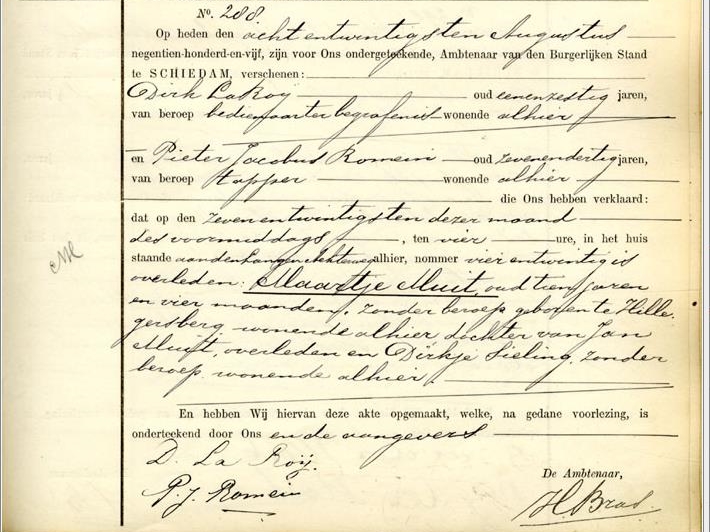 No. 288.
Op heden den acht entwintigsten Augustus
negentien-honderd-en-vijf, zijn voor Ons ondergeteekende, Ambtenaar van den Burgerlijken Stand
te SCHIEDAM, verschenen:
Dirk La Roij oud eenenzestig jaren,
van beroep bedienaar ter begrafenis wonende alhier
en Pieter Jacobus Romein oud zevenendertig jaren,
van beroep tapper wonende alhier
die Ons hebben verklaard:
dat op den zeven entwintigsten dezer maand
des voormiddags, ten vier ure, in het huis
staande aan den alhier, nommer vier entwintig is
overleden: Maartje Muit, oud tien jaren
en vier maanden, zonder beroep geboren te Hille-
gersberg wonende alhier, dochter van Jan
Muit, overleden en Dirkje Sieling, zonder
beroep wonende alhier.
En hebben Wij hiervan deze akte opgemaakt, welke, na gedane voorlezing, is
onderteekend door Ons en de aangevers
D. La Roij.
P. J. Romein
De Ambtenaar,